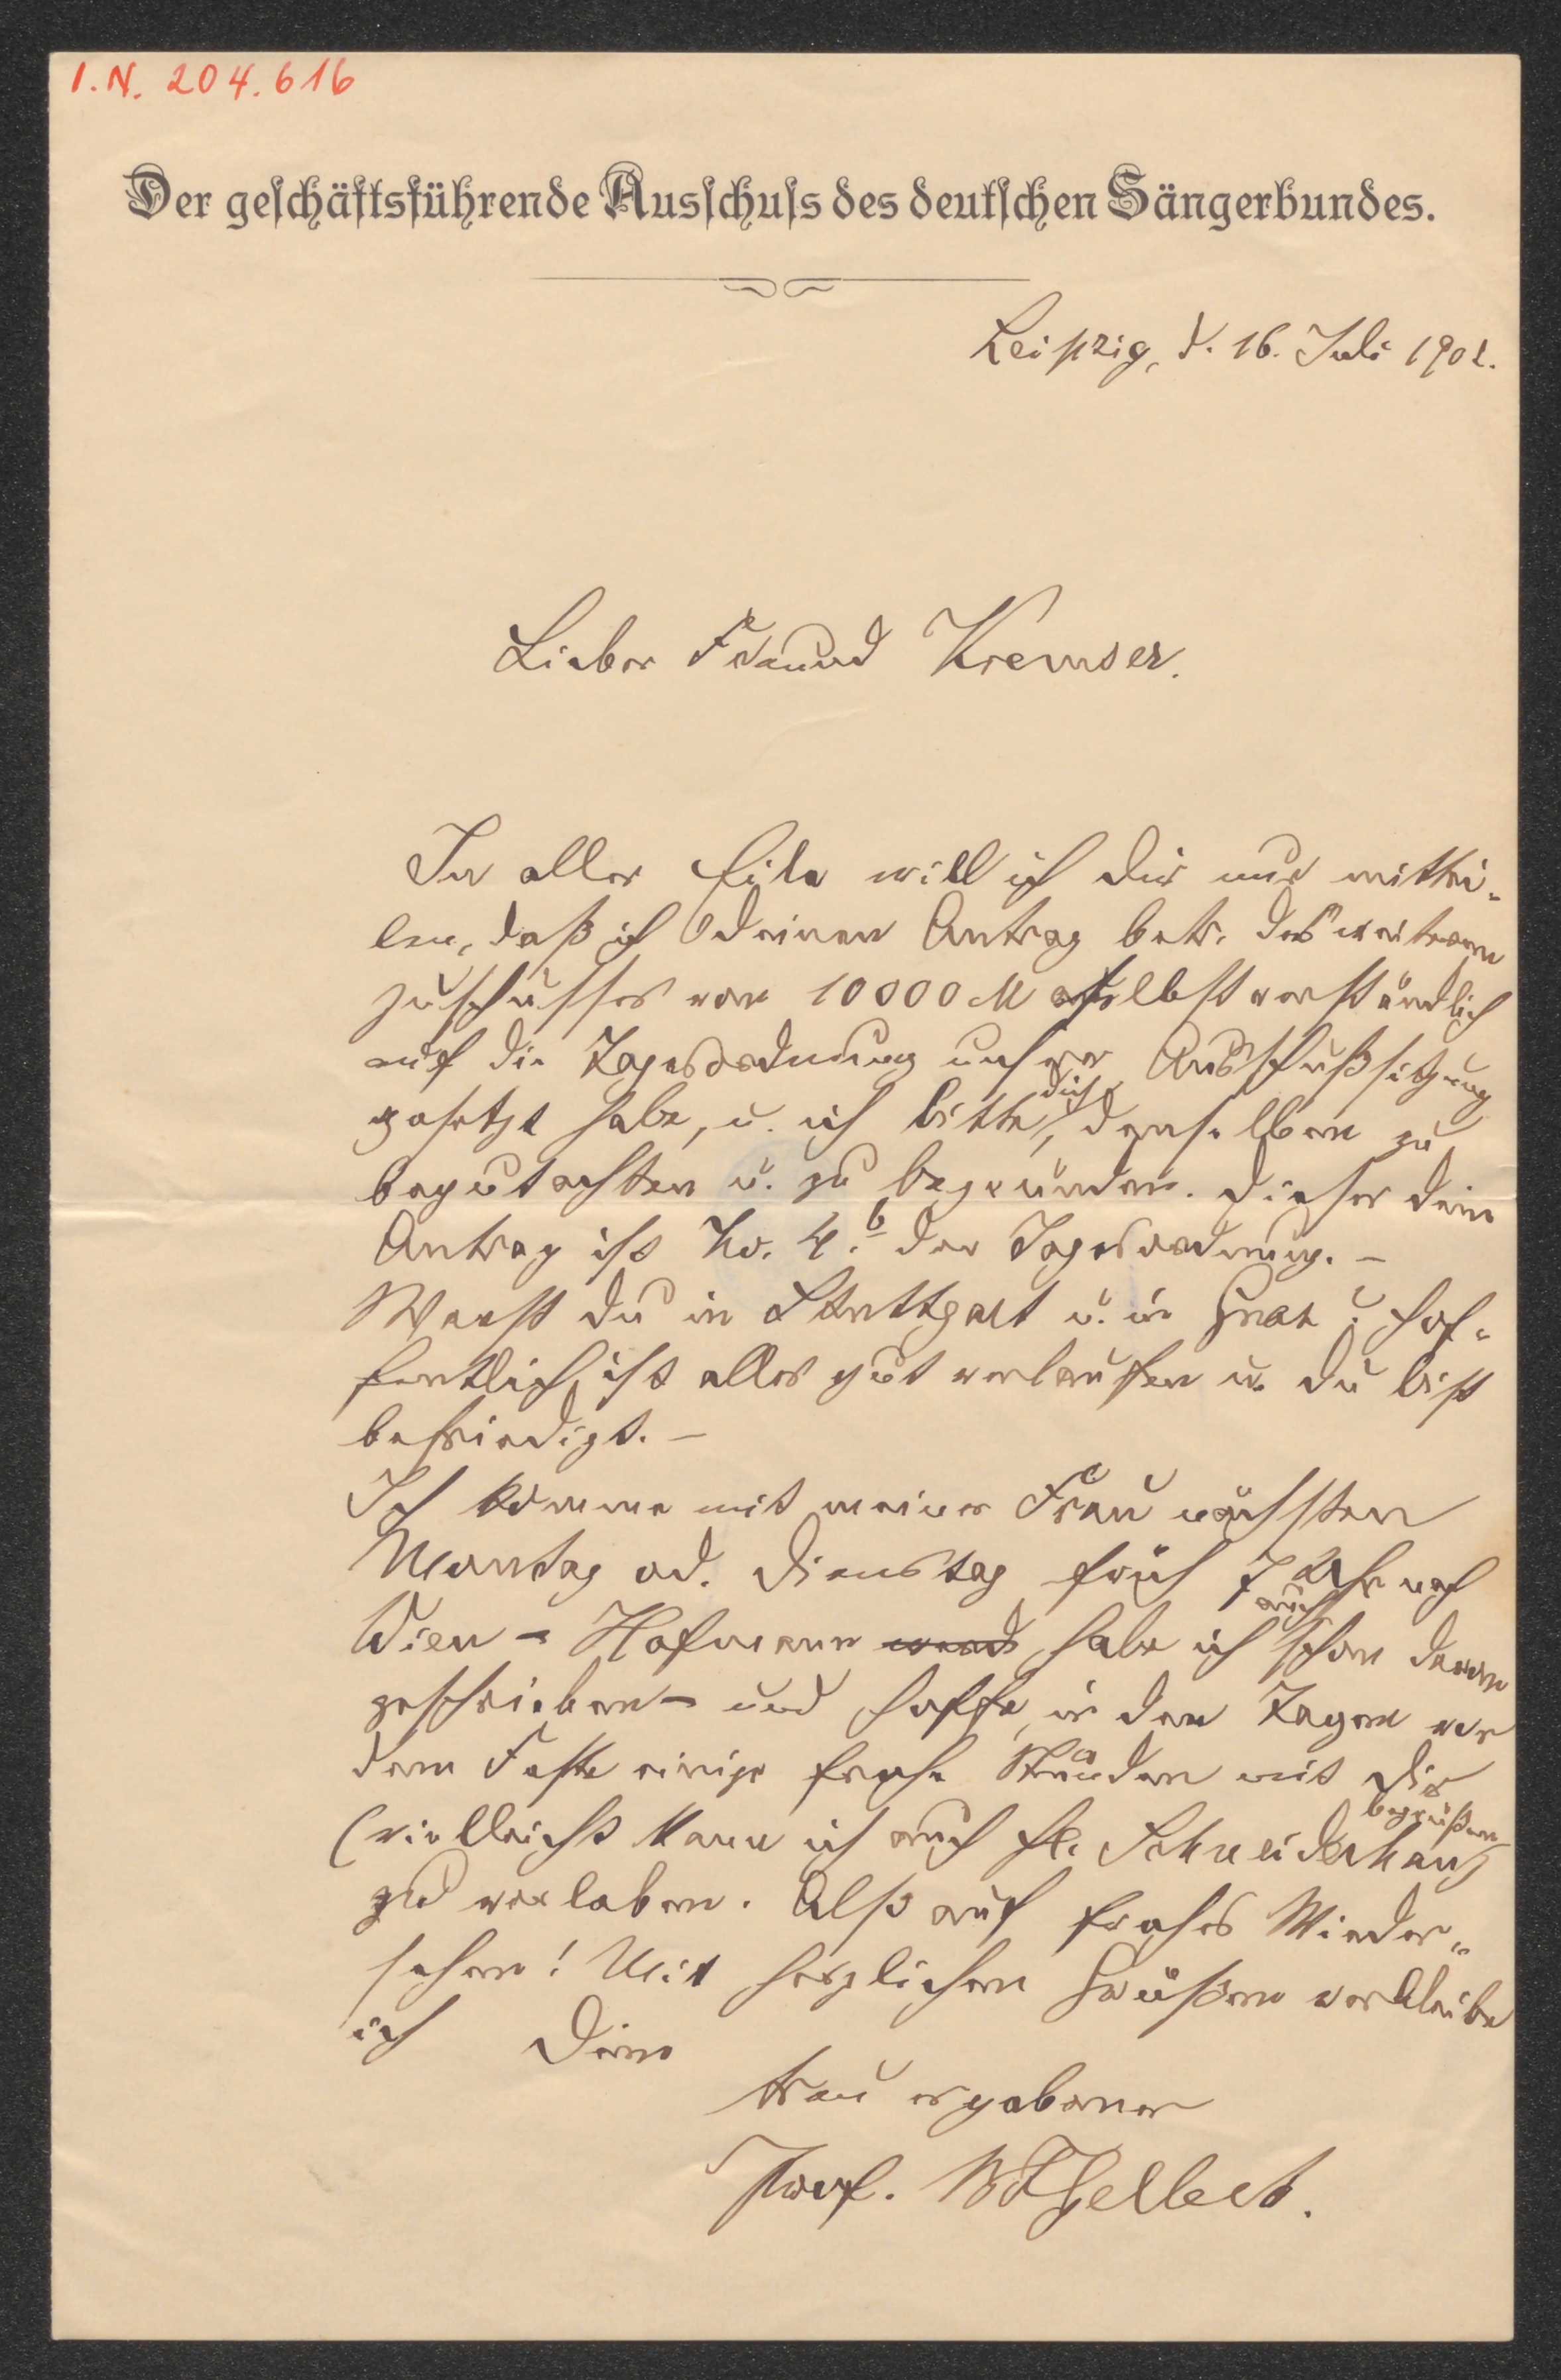 I.N. 204.616
Der geschäftsführende Ausschuss des deutschen Sängerbundes.
Leipzig, d. 16. Juli 1902.
Lieber Freund Kremser.
In aller Eile will ich dir nur mittei-
len, daß ich deinen Antrag betr. des weiteren
Zuschusses von 10000 M selbstverständlich
auf die Tagesordnung unserer Ausschußsitzung
gesetzt habe, u. ich bitte dich, denselben zu
begutachten u. zu begründen. Dieser dein
Antrag ist No. 4.b der Tagesordnung. –
Warst du in Stuttgart u. in Graz? Hof-
fentlich ist alles gut verlaufen u. du bist
befriedigt. –
Ich komme mit meiner Frau nächsten
Montag od. Dienstag früh 7 Uhr nach
Wien – Hofmann habe ich auch schon davon
geschrieben – und hoffe, in den Tagen vor
dem Feste einige frohe Stunden mit dir
(vielleicht kann ich auch Fr. Schneiderhan begrüßen)
zu verleben. Also auf frohes Wieder-
sehen! Mit herzlichen Grüßen verbleibe
ich Dein
treu ergebener
Prof.